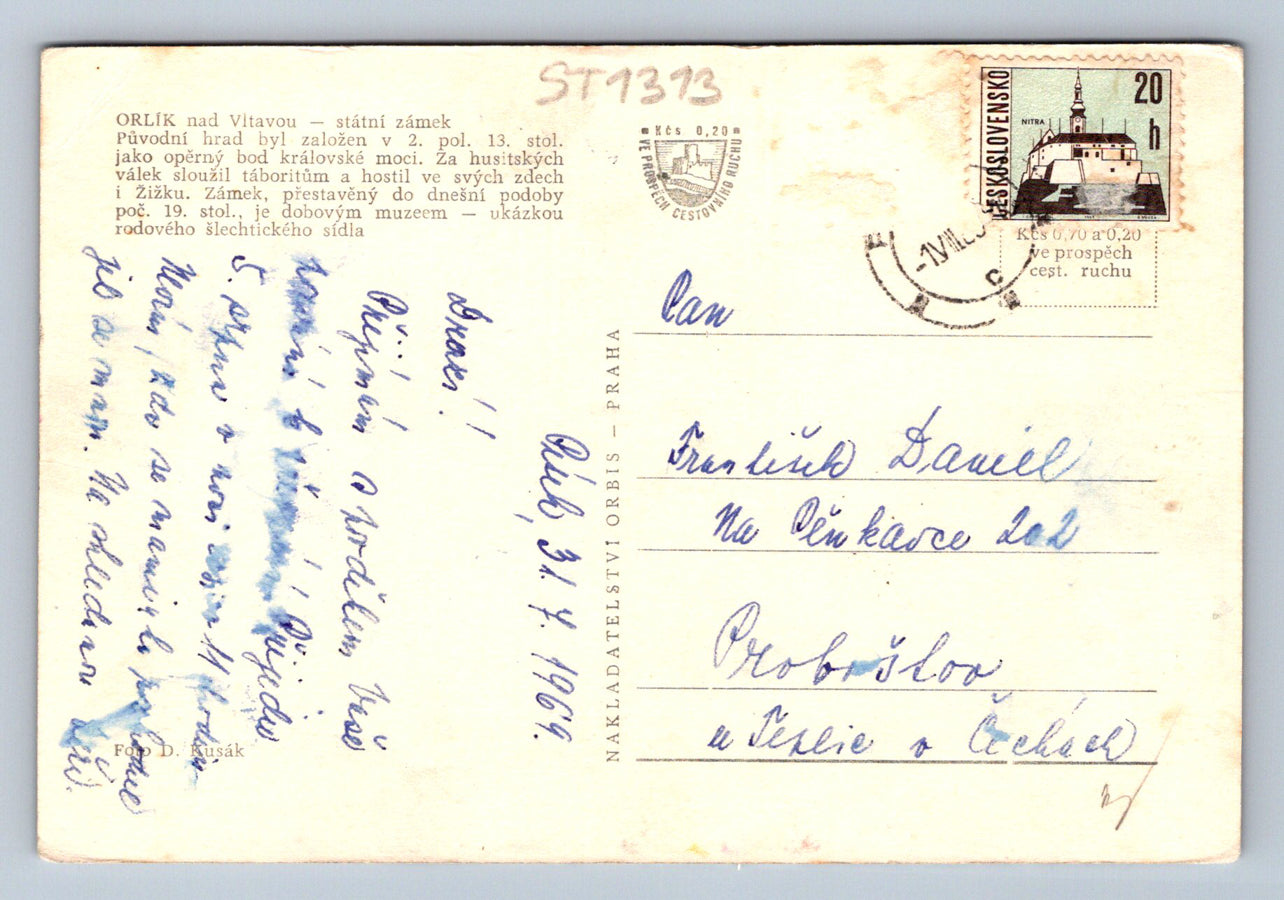 ST1313
ORLÍK nad Vltavou — státní zámek
Původní hrad byl založen v 2. pol. 13. stol.
jako opěrný bod královské moci. Za husitských
válek sloužil táboritům a hostil ve svých zdech
i Žižku. Zámek, přestavěný do dnešní podoby
poč. 19. stol., je dobovým muzeem — ukázkou
rodového šlechtického sídla
Kčs 0,20
VE PROSPĚCH CESTOVNÍHO RUCHU
ČESKOSLOVENSKO
20 h
NITRA
-1.VIII.69
C
Kčs 0,70 a 0,20
ve prospěch
cest. ruchu
31. 7. 1969.
Drazí!
Přijímám s povděkem Vaše
pozvání k Přijedu
5. srpna v noci 11 hodin
se
jel se mam. Na shledanou
Foto D. Kusák
NAKLADATELSTVÍ ORBIS — PRAHA
Pan
František Daniel
Na Pěnkavce 202
Proboštov
u Teplic v Čechách